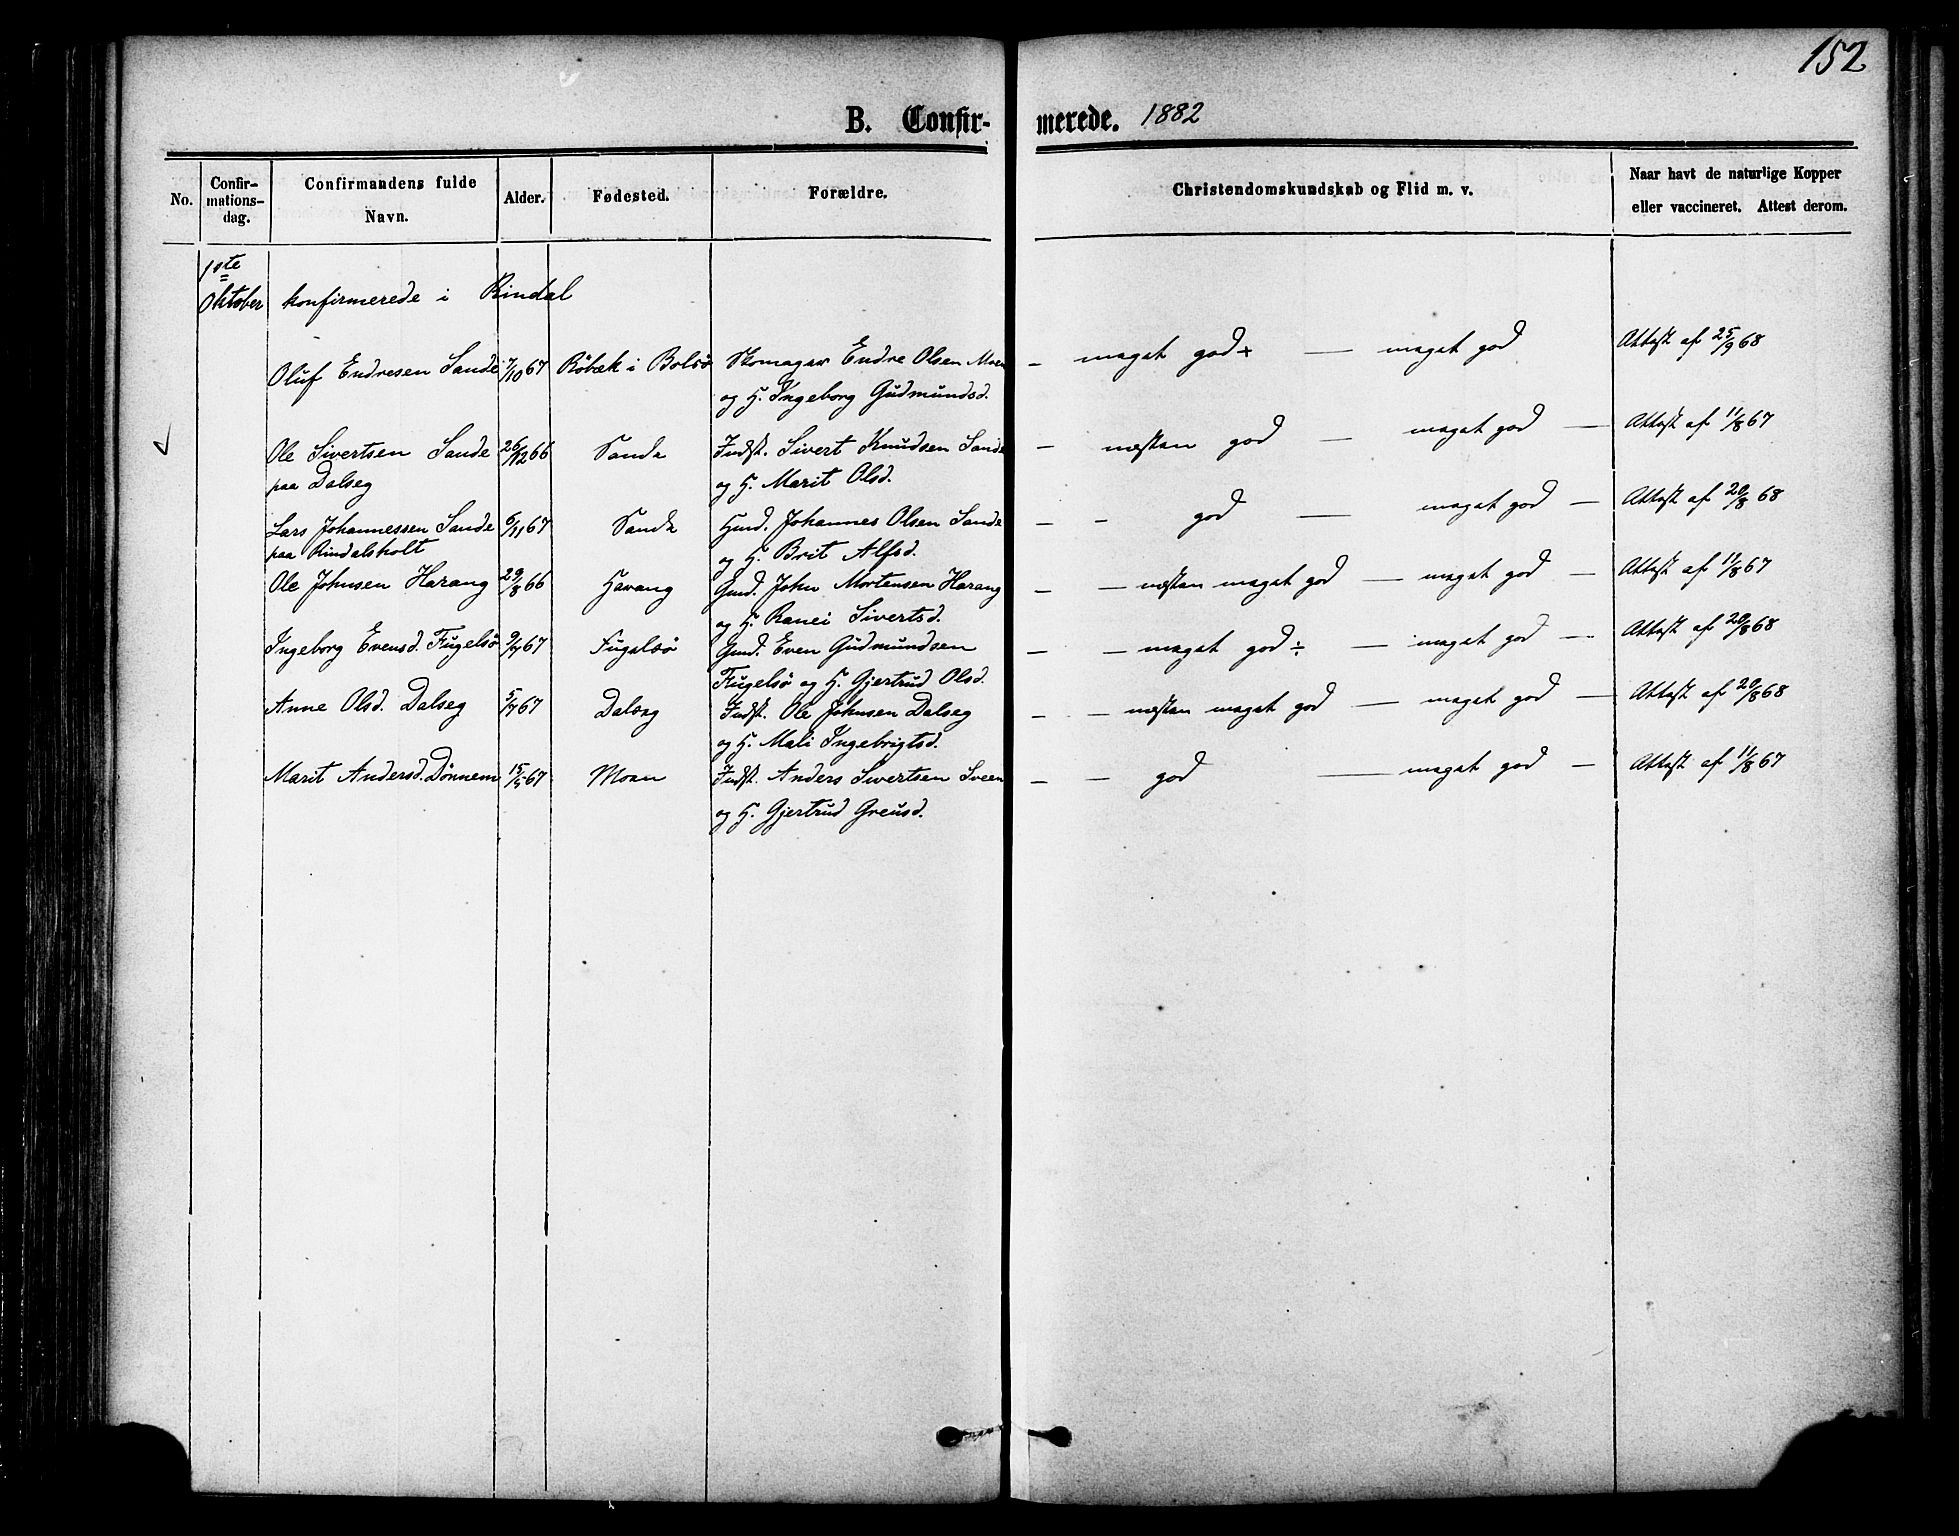 152
B. Confir-merede. 1882
No.
Confir-
mations-
dag.
Confirmandens fulde
Navn.
Alder.
Fødested.
Forældre.
Christendomskundskab og Flid m. v.
Naar havt de naturlige Kopper
eller vaccineret. Attest derom.
1ste
Oktober konfirmerede i Rindal
Oluf Endresen Sande 7/10 67 Röbæk i Bolsö Skomager Endre Olsen Moen - meget god + — meget god Attest af 25/9 68
og H. Ingeborg Gudmundsd.
Ole Sivertsen Sande 26/12 66 Sande Indst. Sivert Knudsen Sande - næsten god — meget god — Attest af 11/8 67
paa Dalseg og H. Marit Olsd.
Lars Johannessen Sande 6/11 67 Sande Gmd. Johannes Olsen Sande - - god — meget god — Attest af 20/8 68
paa Rindalsholt og H. Brit Alfsd.
Ole Johnsen Harang 29/8 66 Harang Gmd. John Mortensen Harang - — næsten meget god — meget god — Attest af 11/8 67
og H. Ranei Sivertsd.
Ingeborg Evensd. Fugelsö 9/7 67 Fugelsö Gmd. Even Gudmundsen - - meget god ÷ — meget god — Attest af 20/8 68
Fugelsö og H. Gjertrud Olsd.
Anne Olsd. Dalseg 5/7 67 Dalseg Indst. Ole Johnsen Dalseg - — næsten meget god — meget god — Attest af 20/8 68
og H. Mali Ingebrigtsd.
Marit Andersd. Dönnem 15/5 67 Moen Indst. Anders Sivertsen Sveen - - god — meget god — Attest af 11/8 67
og H. Gjertrud Greusd.